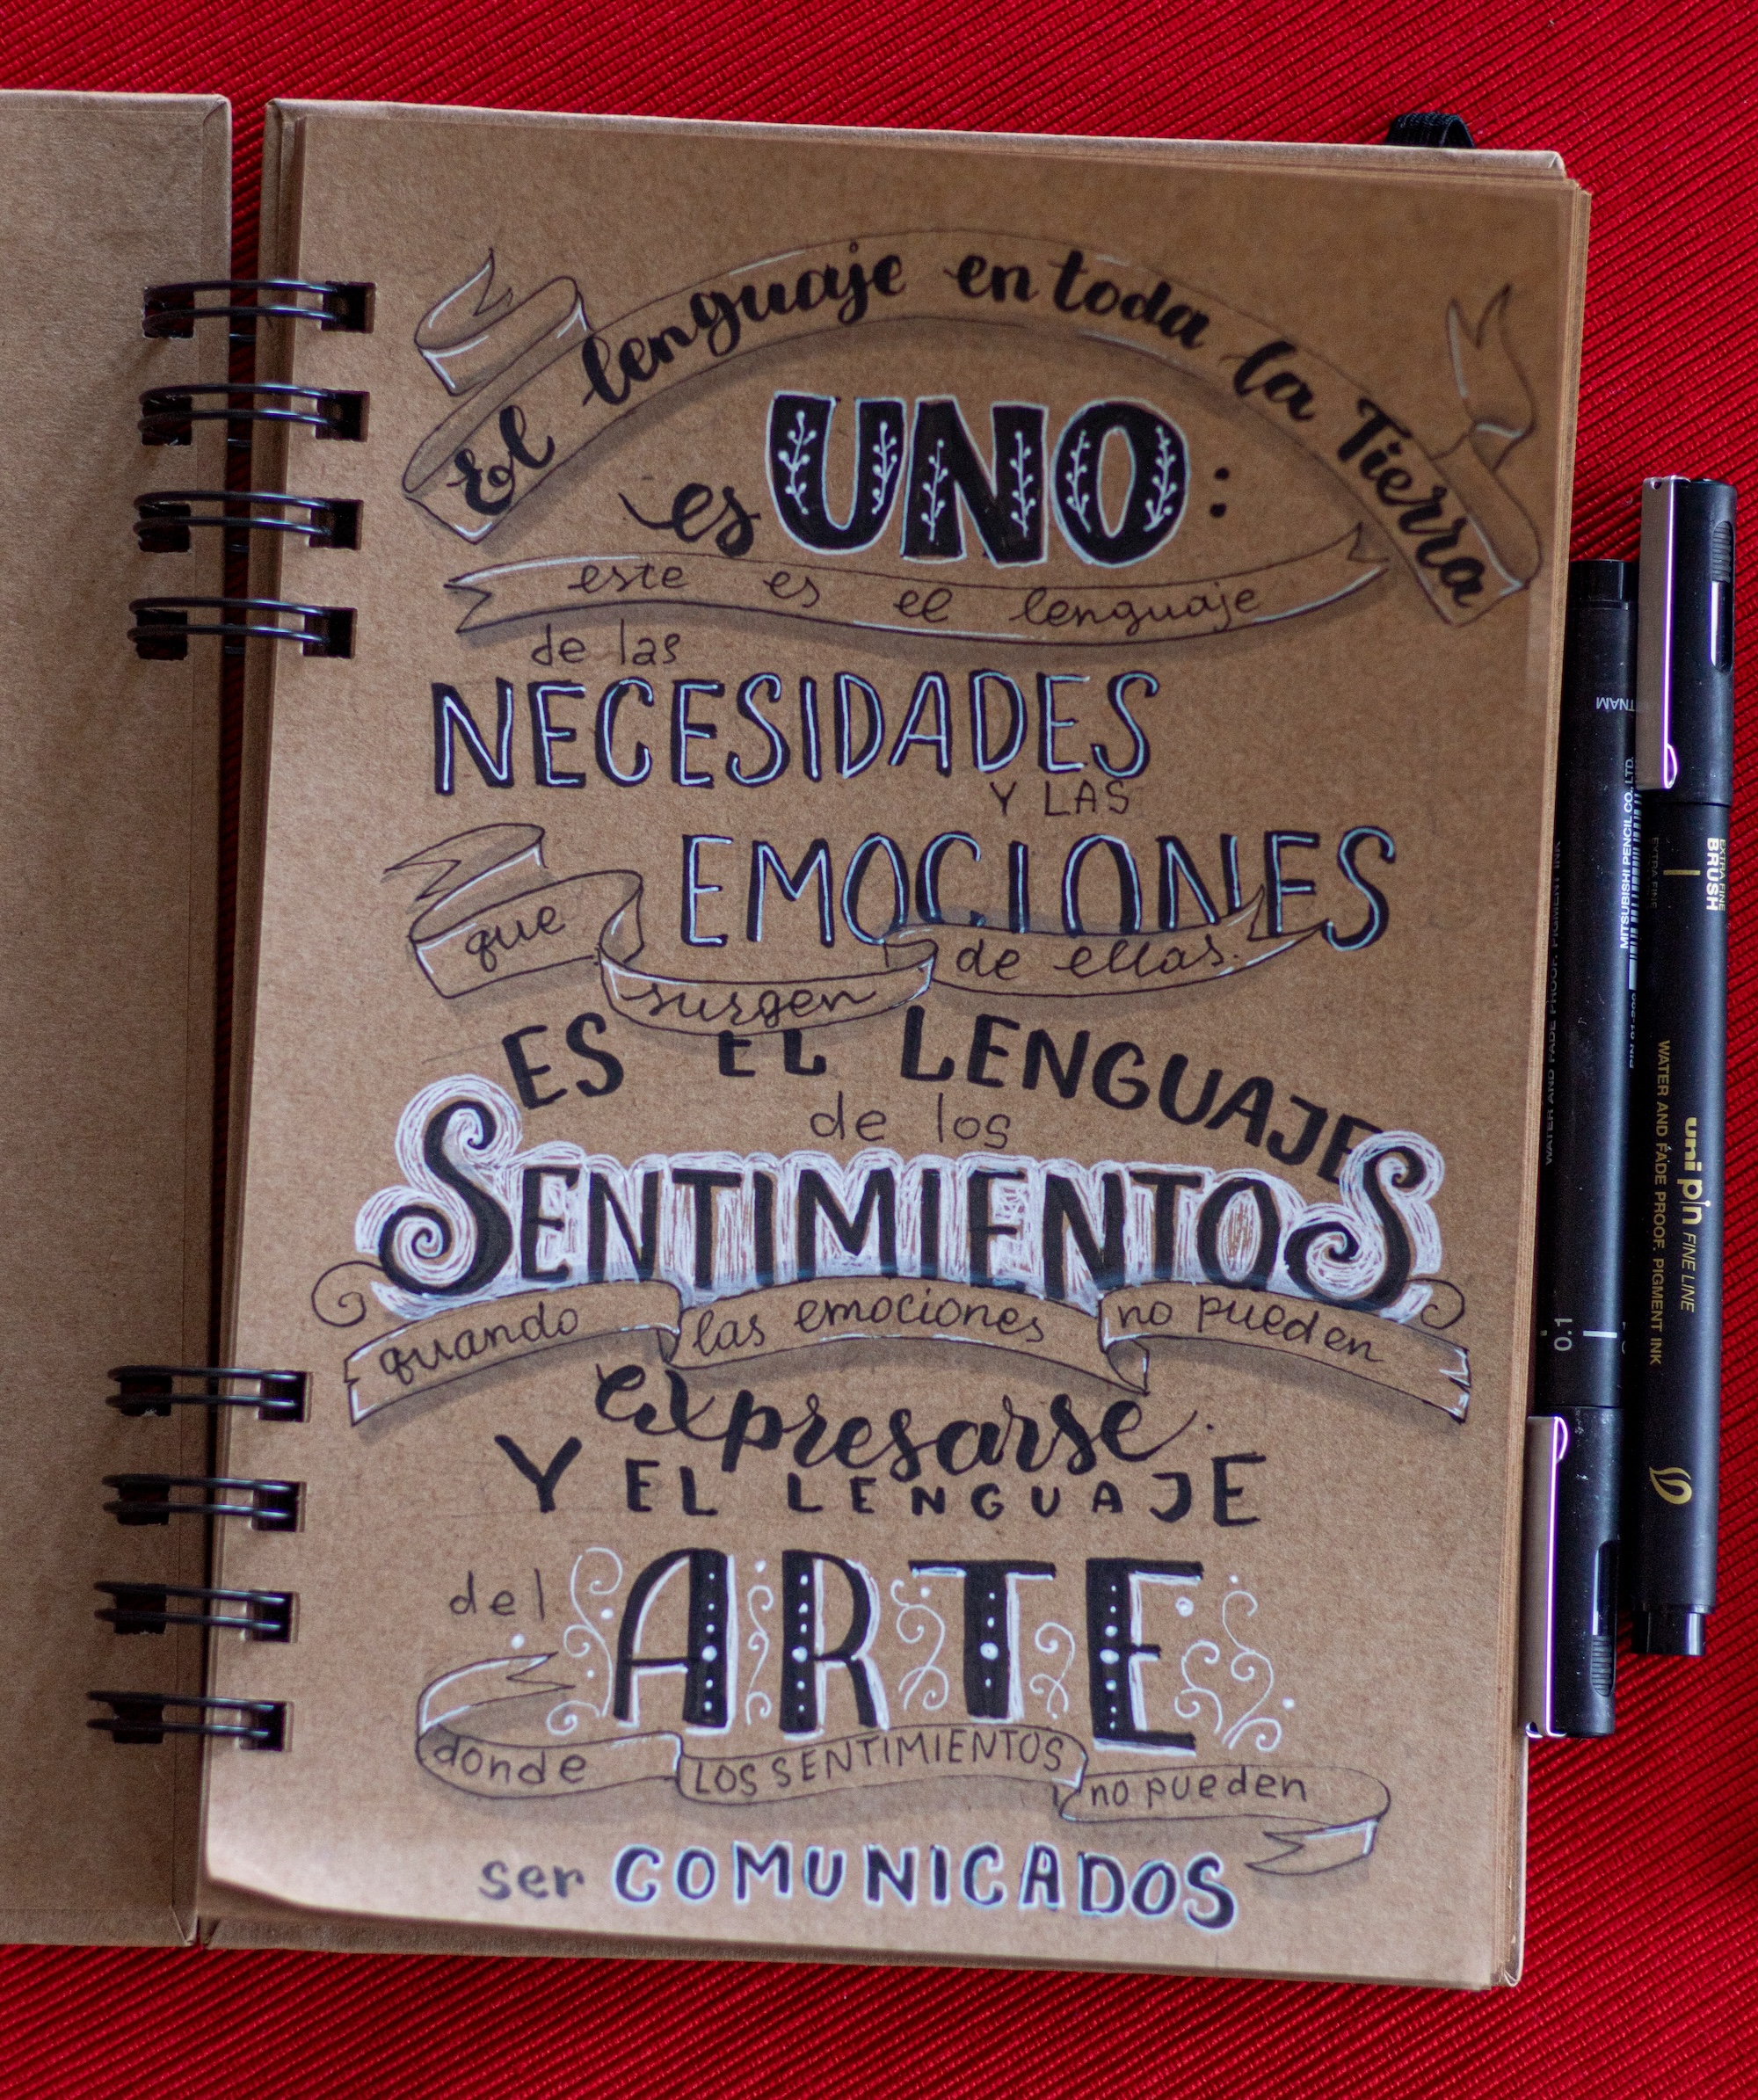 El lenguaje en toda la Tierra
es UNO:
este es el lenguaje
de las
NECESIDADES
Y LAS
EMOCIONES
que surgen de ellas.
ES EL LENGUAJE
de los
SENTIMIENTOS
quando las emociones no pueden
expresarse.
Y EL LENGUAJE
del ARTE
donde LOS SENTIMIENTOS no pueden
ser COMUNICADOS
MITSUBISHI PENCIL CO., LTD.
0.1
EXTRA FINE
BRUSH
uni pin FINE LINE
WATER AND FADE PROOF, PIGMENT INK